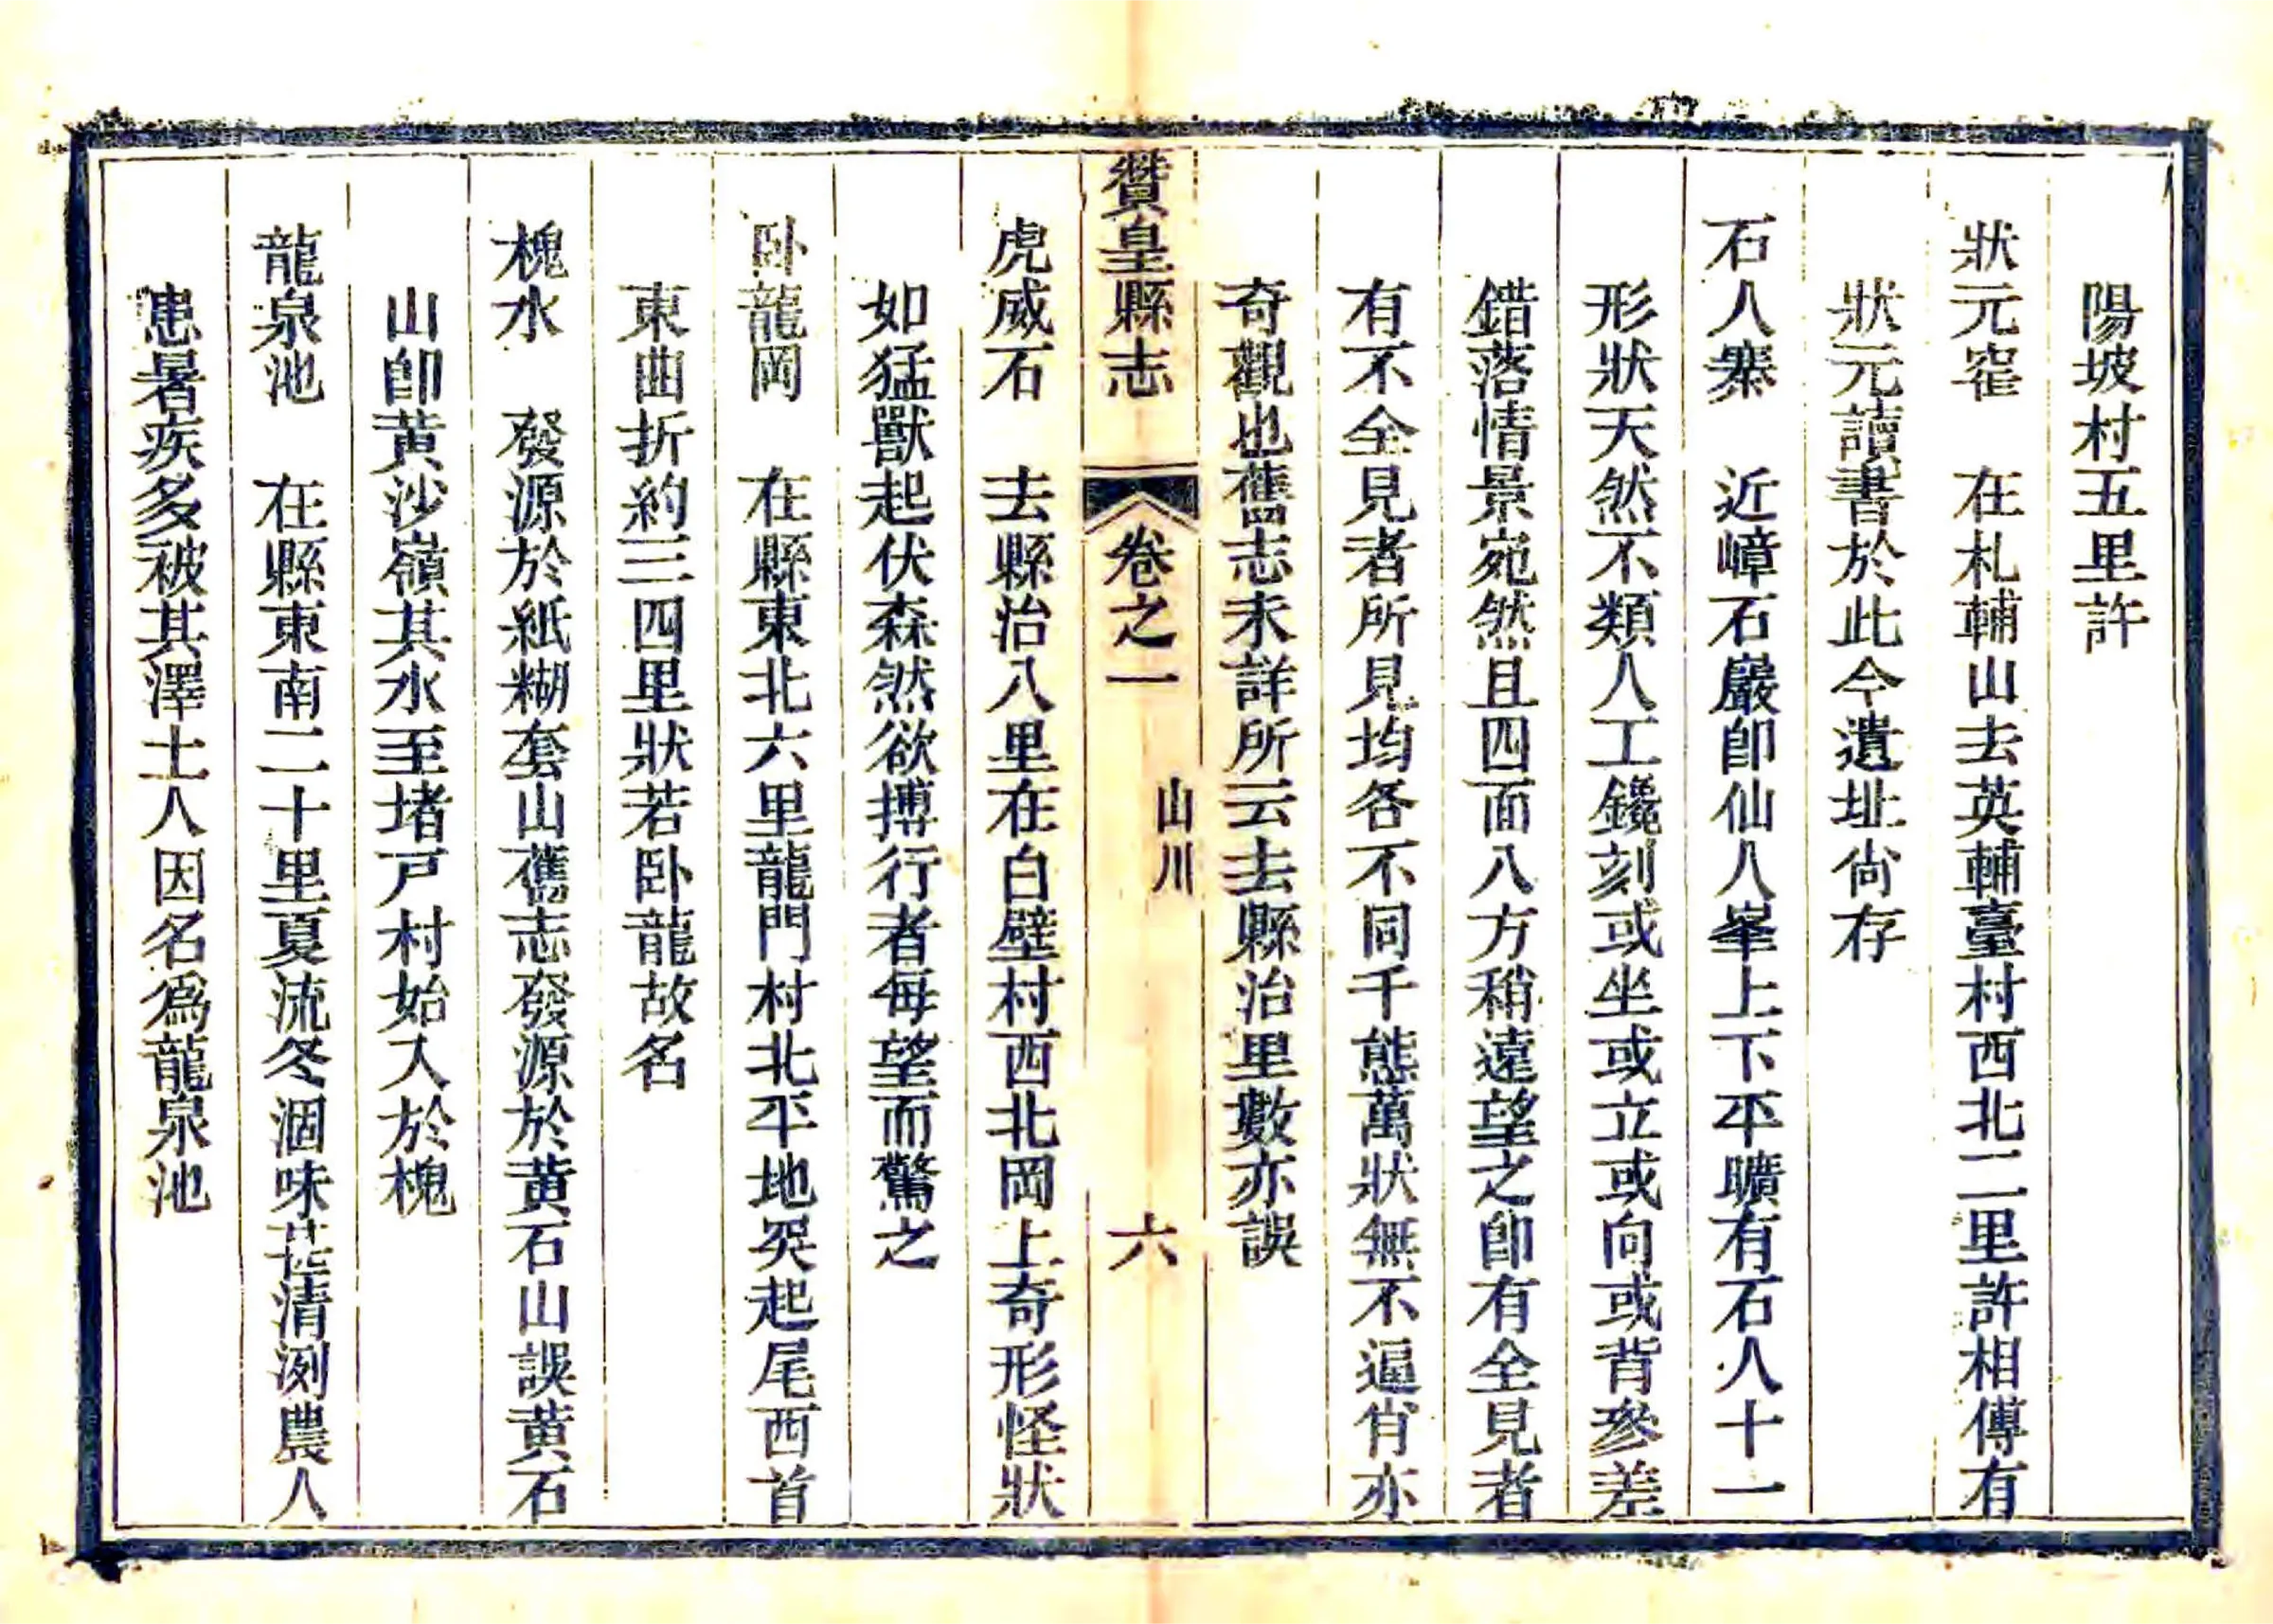 陽坡村五里許
狀元窰　在札輔山去英輔臺村西北二里許相傳有
狀元讀書於此今遺址尙存
石人寨　近嶂石巖卽仙人峯上下平曠有石人十一
形狀天然不類人工鑱刻或坐或立或向或背參差
錯落情景宛然且四面八方稍遠望之卽有全見者
有不全見者所見均各不同千態萬狀無不逼肖亦
奇觀也舊志未詳所云去縣治里數亦誤
贊皇縣志　卷之一　山川　六
虎威石　去縣治八里在白壁村西北岡上奇形怪狀
如猛獸起伏森然欲搏行者每望而驚之
卧龍岡　在縣東北六里龍門村北平地突起尾西首
東曲折約三四里狀若卧龍故名
槐水　發源於紙糊套山舊志發源於黃石山誤黃石
山卽黃沙嶺其水至堵戸村始入於槐
龍泉池　在縣東南二十里夏流冬涸味甚清冽農人
患暑疾多被其澤土人因名爲龍泉池